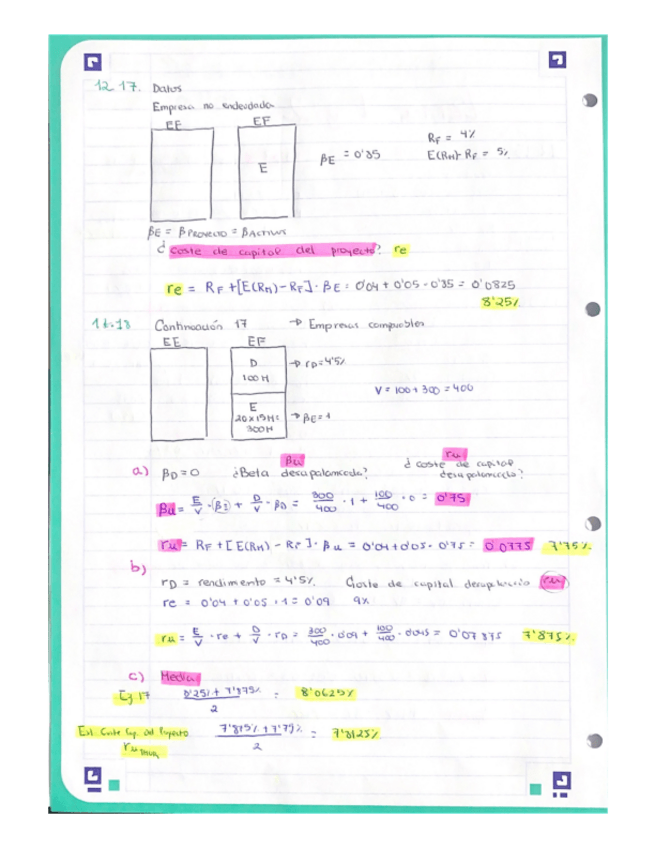 12.17. Datos
Empresa no endeudada
EE EF
E
βE = 0'85
RF = 4%
E(RM)-RF = 5%
βE = βPROYECTO = βACTIVOS
¿coste de capital del proyecto? re
re = RF + [E(RM) - RF] · βE = 0'04 + 0'05 · 0'85 = 0'0825
8'25%
Continuación 17 → Empresas comparables
EE EF
D → rD = 4'5%
100M
V = 100 + 300 = 400
E
20x15M=
300M
→ βE = 1
a) βD = 0 ¿Beta desapalancada? βu ¿coste de capital desapalancado? ru
βu = E/V · βE + D/V · βD = 300/400 · 1 + 100/400 · 0 = 0'75
ru = RF + [E(RM) - RF] · βu = 0'04 + 0'05 · 0'75 = 0'0775 7'75%
b)
rD = rendimiento = 4'5% Coste de capital ru
re = 0'04 + 0'05 · 1 = 0'09 9%
ru = E/V · re + D/V · rD = 300/400 · 0'09 + 100/400 · 0'045 = 0'07875 7'875%
c) Media
Ej. 17 8'25% + 7'875% / 2 = 8'0625%
Est. Coste Cap. Del Proyecto 7'875% + 7'75% / 2 = 7'8125%
ru